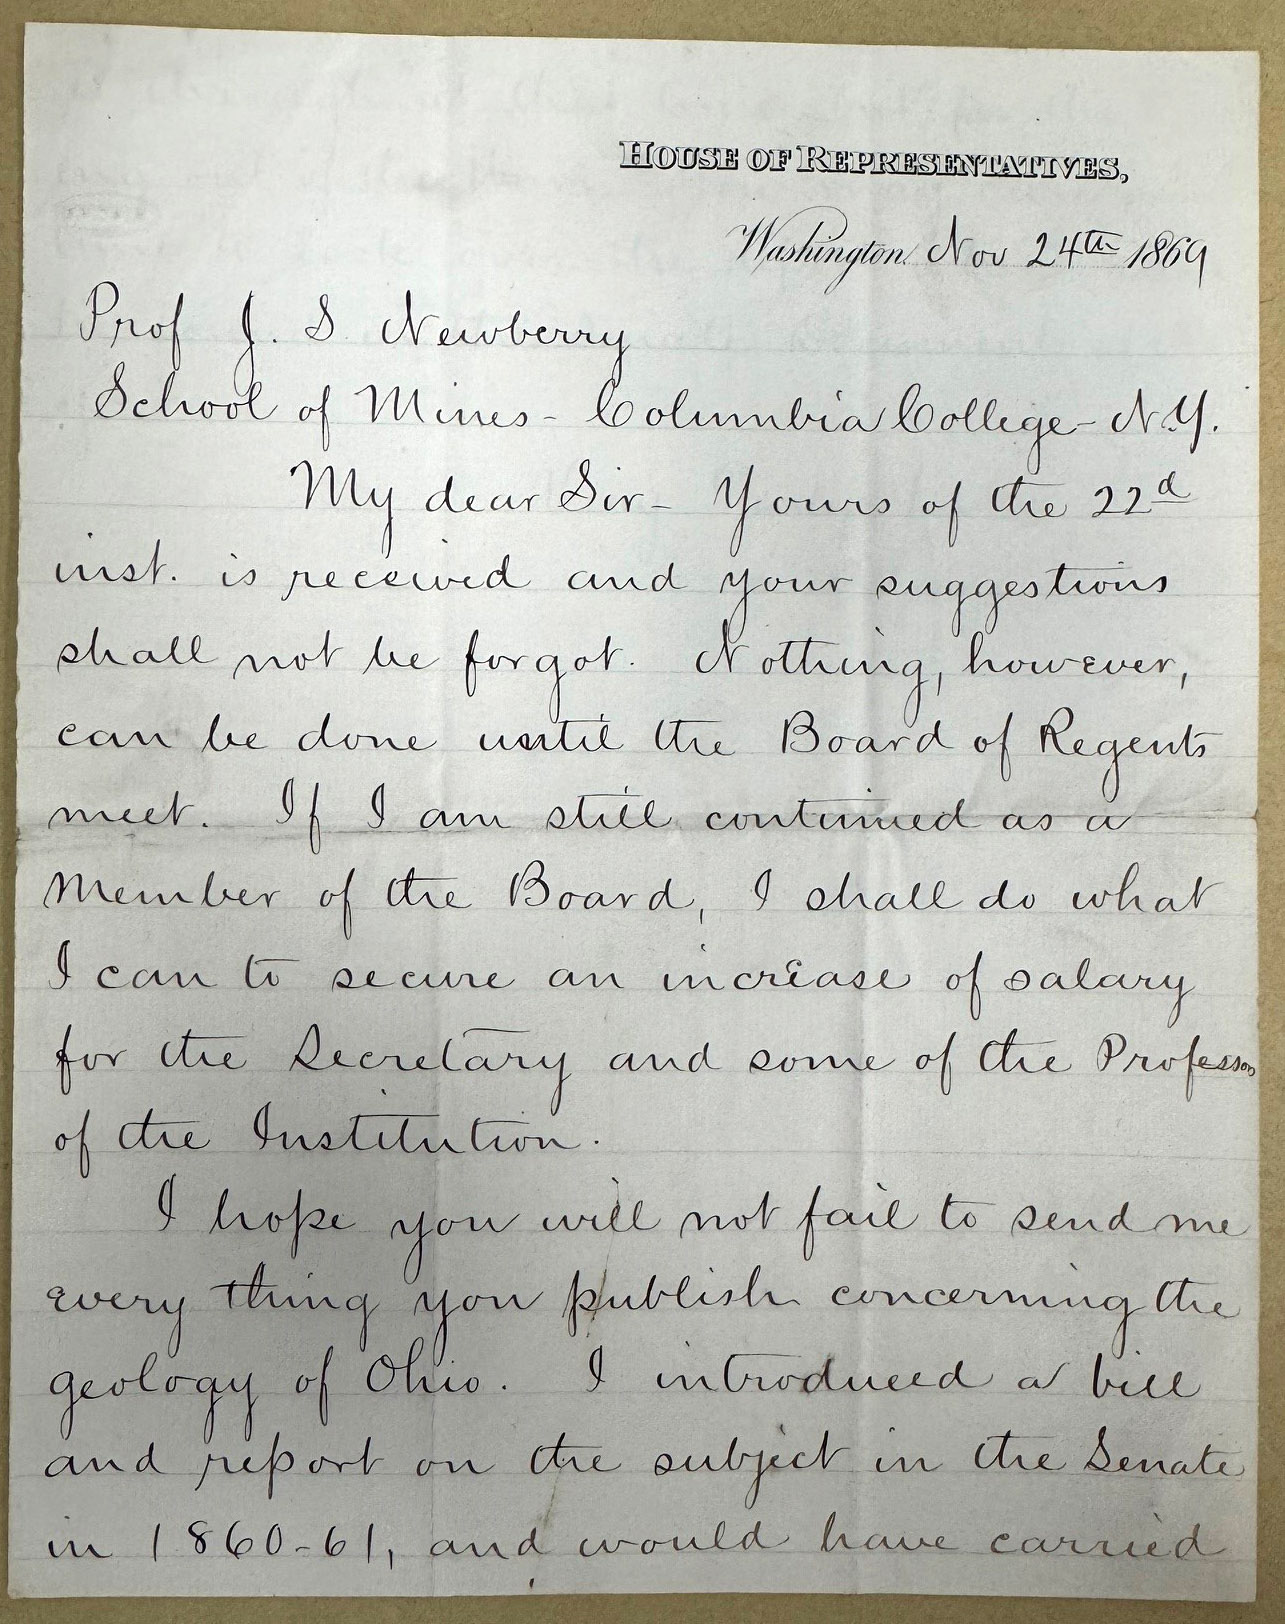 HOUSE OF REPRESENTATIVES,
Washington. Nov 24th 1869
Prof J. S. Newberry
School of Mines - Columbia College - N.Y.
My dear Sir - Yours of the 22d
inst. is received and your suggestions
shall not be forgot. Nothing, however,
can be done until the Board of Regents
meet. If I am still continued as a
Member of the Board, I shall do what
I can to secure an increase of salary
for the Secretary and some of the Professors
of the Institution.
I hope you will not fail to send me
every thing you publish concerning the
geology of Ohio. I introduced a bill
and report on the subject in the Senate
in 1860-61, and would have carried